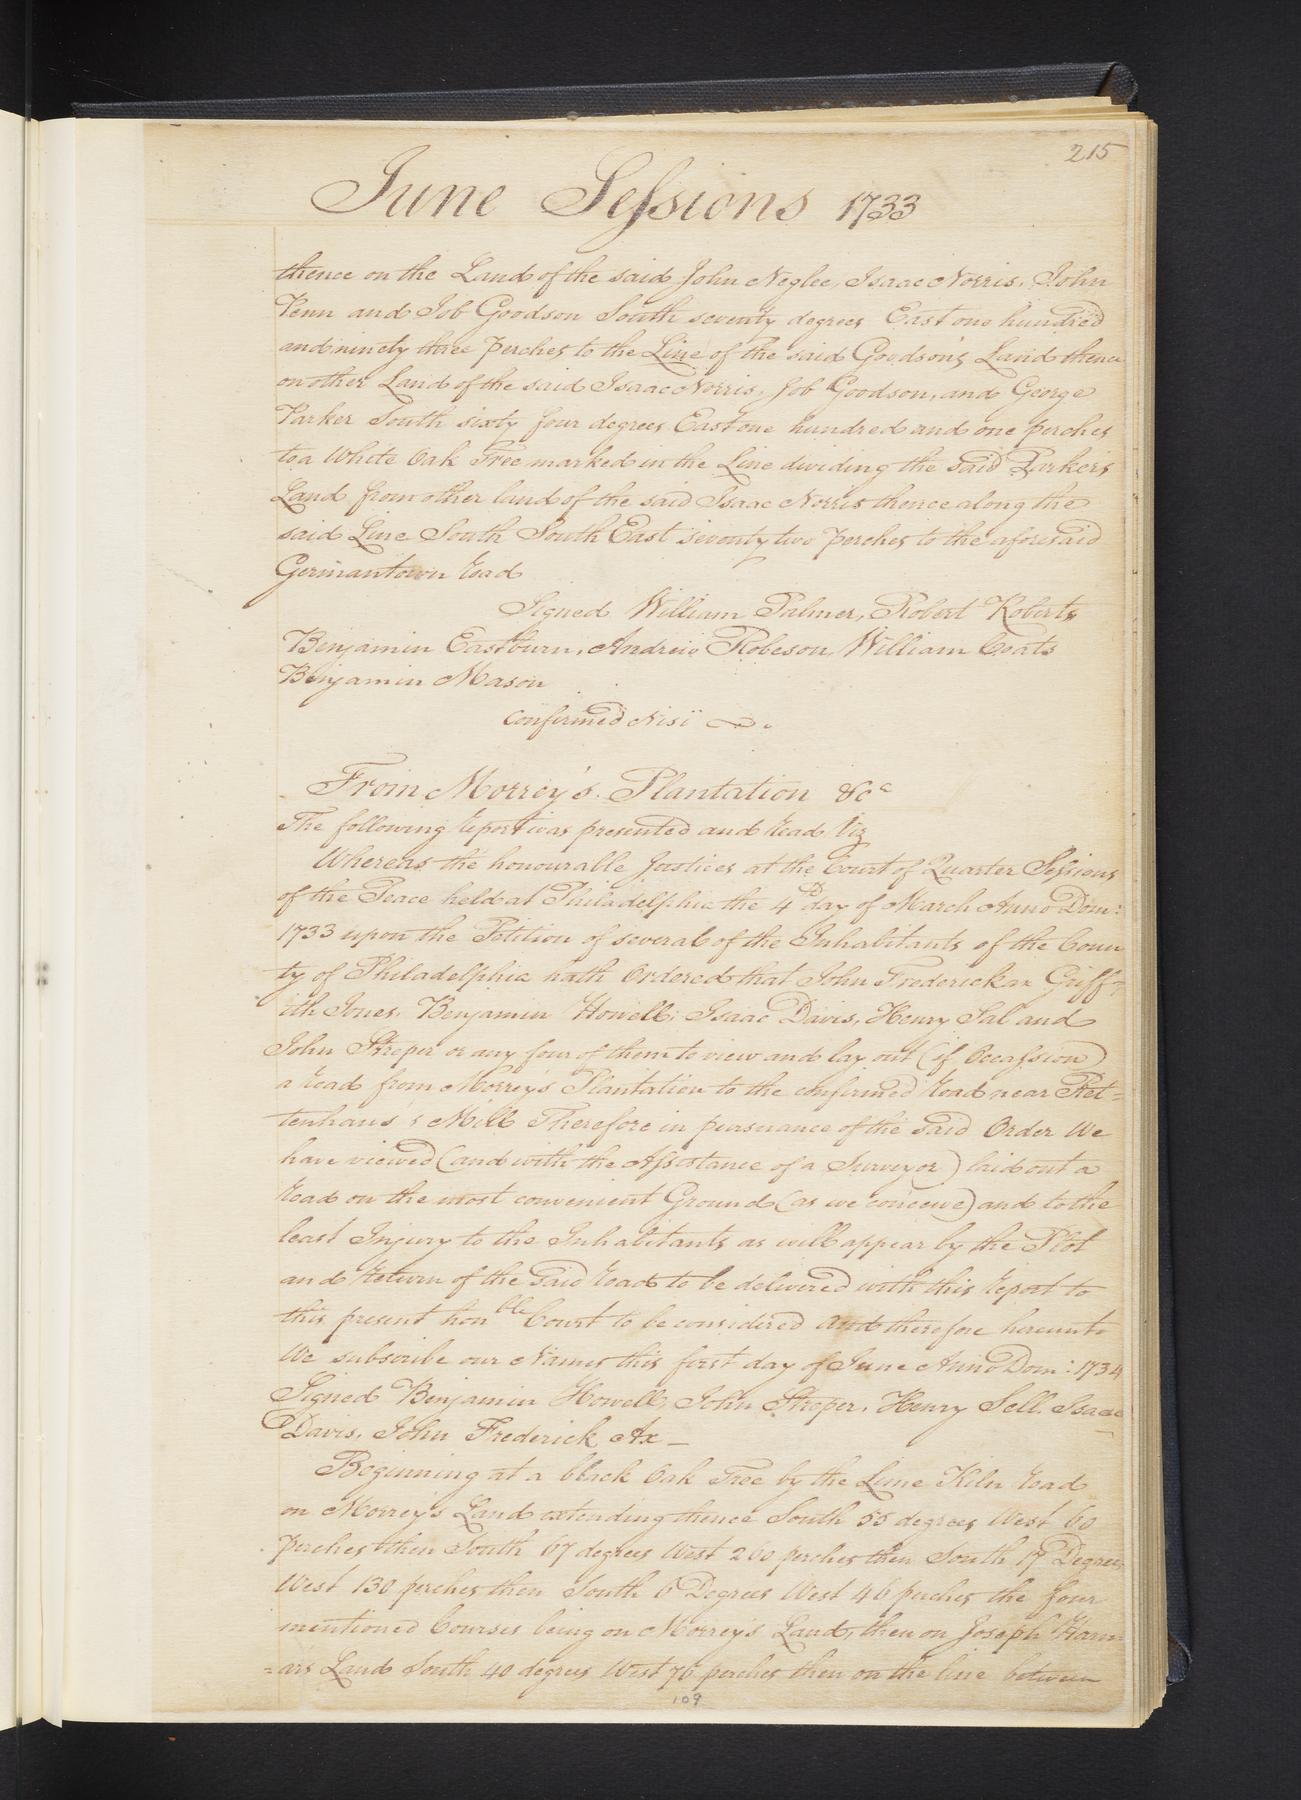 215
June Sessions 1733
thence on the Land of the said John Neglee, Isaac Norris, John
Penn and Job Goodson South seventy degrees East one hundred
and ninety three perches to the Line of the said Goodson's Land thence
on other Land of the said Isaac Norris, Job Goodson, and George
Parker South sixty four degrees East one hundred and one perches
to a White Oak Tree marked in the Line dividing the said Parkers
Land from other land of the said Isaac Norris thence along the
said Line South South East seventy two perches to the aforesaid
Germantown Road
Signed William Palmer, Robert Roberts
Benjamin Eastburn, Andrew Robeson, William Coats
Benjamin Mason
Confirmed Nisi
From Morrey's Plantation &c a
The following Report was presented and Read Viz
Whereas the honourable Justices at the Court of Quarter Sessions
of the Peace held at Philadelphia the 4th day of March Anno Dom:
1733 upon the Petition of several of the Inhabitants of the Coun
ty of Philadelphia hath Ordered that John Frederick ax Griff=
ith Jones, Benjamin Howell, Isaac Davis, Henry Sal and
John Streper or any four of them to view and lay out (if Occassion)
a Road from Morrey's Plantation to the confirmed Road near Ret=
tenhaus's Mill Therefore in pursuance of the said Order We
have viewed (and with the Assistance of a Surveyor) laid out a
Road on the most convenient Ground (as we conceive) and to the
least Injury to the Inhabitants as will appear by the Plot
and Return of the said Road to be delivered with this Report to
this present hon ble Court to be considered and therefore hereunto
We subscribe our Names this first day of June Anno Dom: 1734
Signed Benjamin Howell, John Streper, Henry Sell. Isaac
Davis, John Frederick Ax —
Beginning at a black Oak Tree by the Lime Kiln Road
on Morrey's Land extending thence South 55 degrees West 60
Perches then South 67 degrees West 260 perches then South 17 Degrees
West 130 perches then South 6 Degrees West 46 perches the four
mentioned Courses being on Morrey's Land, then on Joseph Harm
=ars Land South 40 degrees West 76 perches then on the line between
109